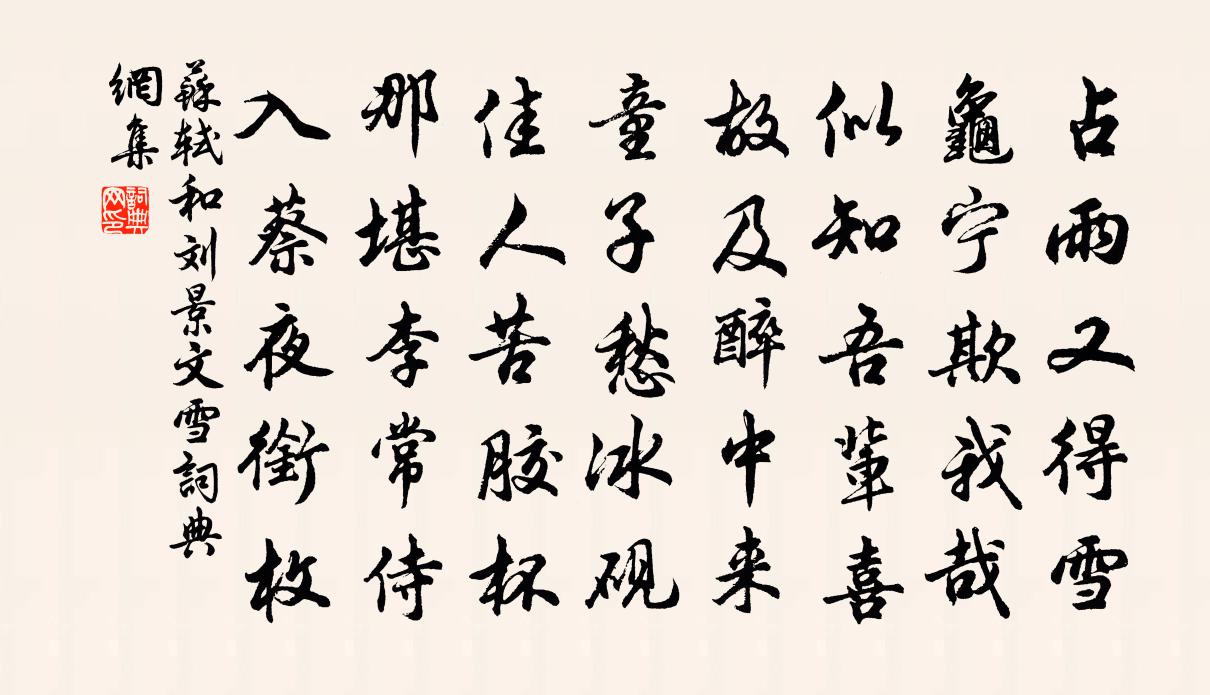 占雨又得雪
龜宁欺我哉
似知吾輩喜
故及醉中来
童子愁冰硯
佳人苦胶杯
那堪李常侍
入蔡夜銜枚
蘇轼和刘景文雪詞典
網集
詞典
网印